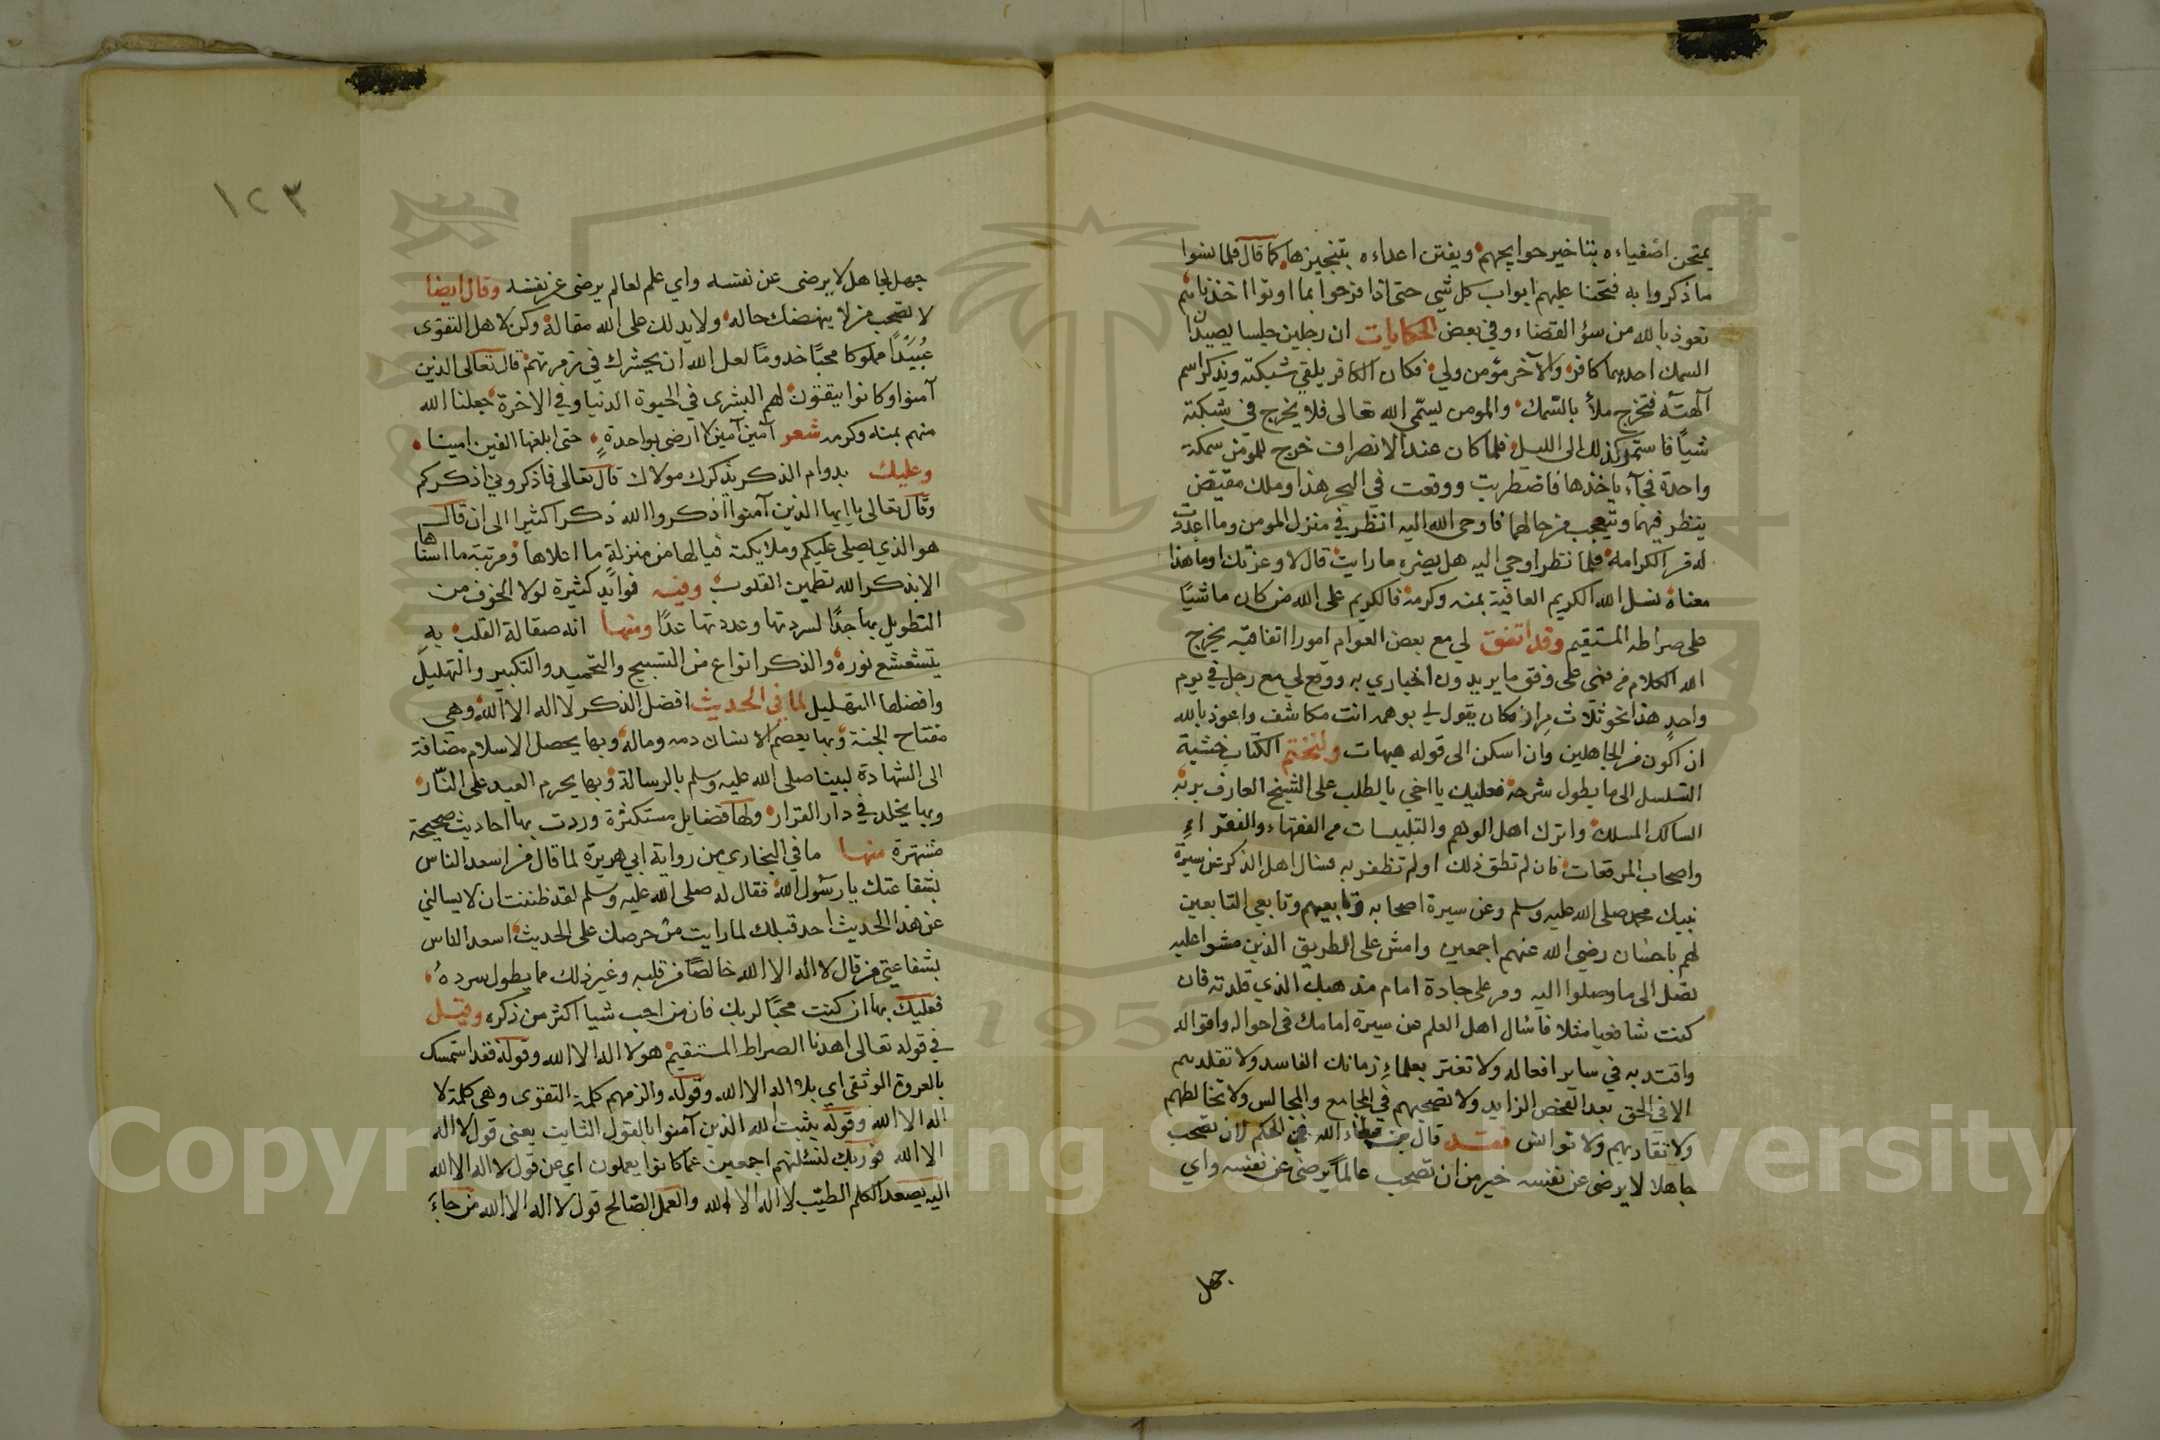 يمتحن اصفياءه بتاخير حوايجهم ويفتن اعداءه بتنجيزها كما قال فلما نسوا
ما ذكروا به فتحنا عليهم ابواب كل شي حتى اذا فرحوا بما اوتوا اخذناهم
نعوذ بالله من سؤ القضاء وفي بعض الحكايات ان رجلين جلسا يصيدا
السمك احدهما كافر والآخر مؤمن ولي فكان الكافر يلقي شبكته ويذكر اسم
آلهته فتخرج ملأ بالسمك والمومن يسمى الله تعالى فلا يخرج في شبكته
شيا فاستمر كذلك الى الليل فلما كان عند الانصراف خرج للمؤمن سمكة
واحدة فجآء ياخذها فاضطربت ووقعت في البحر هذا وملك مقيض
ينظر فيهما ويتعجب من حالهما فاوحى الله اليه انظر في منزل المومن وما اعددت
له من الكرامه فلما نظر اوحي اليه هل يضره ما رايت قال لا وعزتك او ما هذا
معناه نسل الله الكريم العافية بمنه وكرمه فالكريم على الله من كان ماشيا
على صراطه المستقيم وقد اتفق لي مع بعض العوام امورا اتفاقيه يخرج
الله الكلام من فمى على وفق ما يريدون اخباري به ووقع لي مع رجل في يوم
واحد هذا نحو ثلاث مرار فكان يقول لي بوهمه انت مكاشف واعوذ بالله
ان اكون من الجاهلين وان اسكن الى قوله هيهات ولنختم الكتاب خشية
التسلسل الى ما يطول شرحه فعليك يا اخي بالطلب على الشيخ العارف بربه
السالك المسلك واترك اهل الوهم والتلبيسات من الفقهاء والفقراء
واصحاب المرقعات فان لم تطق ذلك او لم تظفر به فسال اهل الذكر عن سيرة
نبيك محمد صلى الله عليه وسلم وعن سيرة اصحابه وتابعيهم وتابعي التابعين
لهم باحسان رضي الله عنهم اجمعين وامش على الطريق الذين مشوا عليه
تصل الى ما وصلوا اليه ومر على جادة امام مذهبك الذي قلدته فان
كنت شافعيا مثلا فاسال اهل العلم عن سيرة امامك في احواله واقواله
واقتد به في ساير افعاله ولا تغتر بعلماء زمانك الفاسد ولا تقلدهم
الا في الحق بعد الفحص الزايد ولا تصحبهم في المجامع والمجالس ولا تخالطهم
ولا تقاربهم ولا توانس فقد قال عطاء الله في الحكم لان تصحب
جاهلا لا يرضى عن نفسه خير من ان تصحب عالما يرضى عن نفسه واي
جهل
١٢٣
جهل لجاهل لا يرضى عن نفسه واي علم لعالم يرضى عن نفسه وقال ايضا
لا تصحب من لا ينهضك حاله ولا يدلك على الله مقاله وكن لاهل التقوى
عبيدا مملوكا محبا خدوما لعل الله ان يحشرك في زمرتهم قال تعالى الذين
آمنوا وكانوا يتقون لهم البشرى في الحيوة الدنيا وفي الاخرة جعلنا الله
منهم بمنه وكرمه شعر آمين آمين لا ارضى بواحدة حتى ابلغها الفين امينا
وعليك بدوام الذكر يذكرك مولاك قال تعالى فاذكروني اذكركم
وقال تعالى يا ايها الذين آمنوا اذكروا الله ذكرا كثيرا الى ان قال
هو الذي يصلي عليكم وملايكته فيا لها من منزلة ما اعلاها ومرتبة ما اسناها
الا بذكر الله تطمين القلوب وفيه فوايد كثيرة لولا الخوف من
التطويل بها جدا لسردتها وعددتها عدا ومنها انه صقالة القلب به
يتشعشع نوره والذكر انواع من التسبيح والتحميد والتكبير والتهليل
وافضلها التهليل لما في الحديث افضل الذكر لا اله الا الله وهي
مفتاح الجنة وبها يعصم الانسان دمه وماله وبها يحصل الاسلام مضافة
الى الشهادة لنبينا صلى الله عليه وسلم بالرسالة وبها يحرم العبد على النار
وبها يخلد في دار القرار ولها فضايل مستكثرة وردت بها احاديث صحيحة
مشتهرة منها ما في البخاري من رواية ابي هريرة لما قال من اسعد الناس
بشفاعتك يا رسول الله فقال له صلى الله عليه وسلم لقد ظننت ان لا يسالني
عن هذا الحديث احد قبلك لما رايت من حرصك على الحديث اسعد الناس
بشفاعتي من قال لا اله الا الله خالصا من قلبه وغير ذلك مما يطول سرده
فعليك بها ان كنت محبا لربك فان من احب شيا اكثر من ذكره وقيل
في قوله تعالى اهدنا الصراط المستقيم هو لا اله الا الله وقوله فقد استمسك
بالعروة الوثقى اي بلا اله الا الله وقوله والزمهم كلمة التقوى وهي كلمة لا
اله الا الله وقوله يثبت الله الذين آمنوا بالقول الثابت يعني قول لا اله
الا الله فوربك لنسئلنهم اجمعين عما كانوا يعملون اي عن قول لا اله الا الله
اليه يصعد الكلم الطيب لا اله الا الله والعمل الصالح قول لا اله الا الله من جاء
Copyright © King Saud University
1957